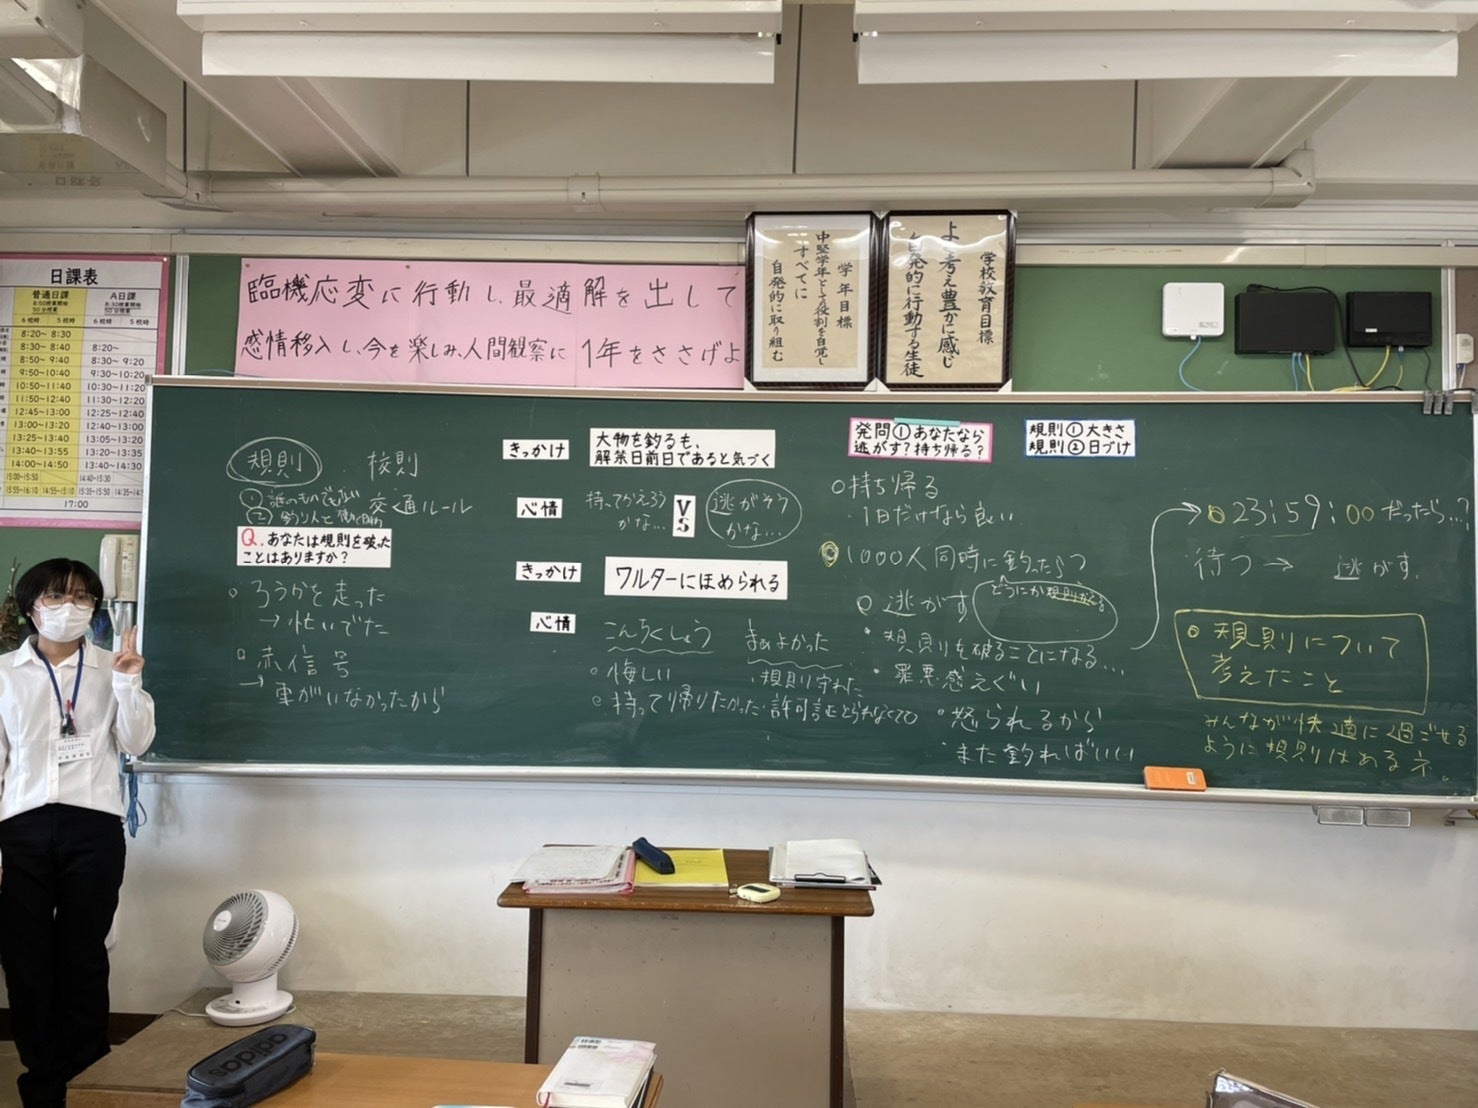 日課表
普通日課
8:50授業開始
50分授業
6校時
A日課
8:30授業開始
50分授業
6校時 5校時
8:20～ 8:30
8:30～ 8:40 8:20～
8:50～ 9:40 8:30～ 9:20
9:50～10:40 9:30～10:20
10:50～11:40 10:30～11:20
11:50～12:40 11:30～12:20
12:45～13:00 12:25～12:40
13:00～13:20 12:40～13:00
13:25～13:40 13:05～13:20
13:40～13:55 13:20～13:35
14:00～14:50 13:40～14:30
15:00～15:50 14:40～15:30
17:00
臨機応変に行動し、最適解を出して
感情移入し、今を楽しみ、人間観察に 1年をささげよ
学年目標
中堅学年として役割を自覚し
すべてに
自発的に取り組む
学校教育目標
よく考え豊かに感じ
自発的に行動する生徒
規則 校則
① 誰のものでもない
交通ルール
②
Q.あなたは規則を破った
ことはありますか？
ろうかを走った
→忙いでた
赤信号
→車がいなかったから
きっかけ
大物を釣るも、
解禁日前日であると気づく
心情
持ってかえろう
かな…
VS
逃がそう
かな…
きっかけ
ワルターにほめられる
心情
こんちくしょう
悔しい
持って帰りたかった
まぁよかった
規則守れた
許可証とられなくて
発問①あなたなら
逃がす？持ち帰る？
規則①大きさ
規則②日づけ
持ち帰る
・1日だけなら良い
1000人同時に釣ったら？
逃がす
・規則を破ることになる…
・罪悪感えぐい
・怒られるから
・また釣ればいい
23:59:00だったら…？
待つ→ 逃がす.
規則について
考えたこと
みんなが快適に過ごせる
ように規則はあるネ。
adidas